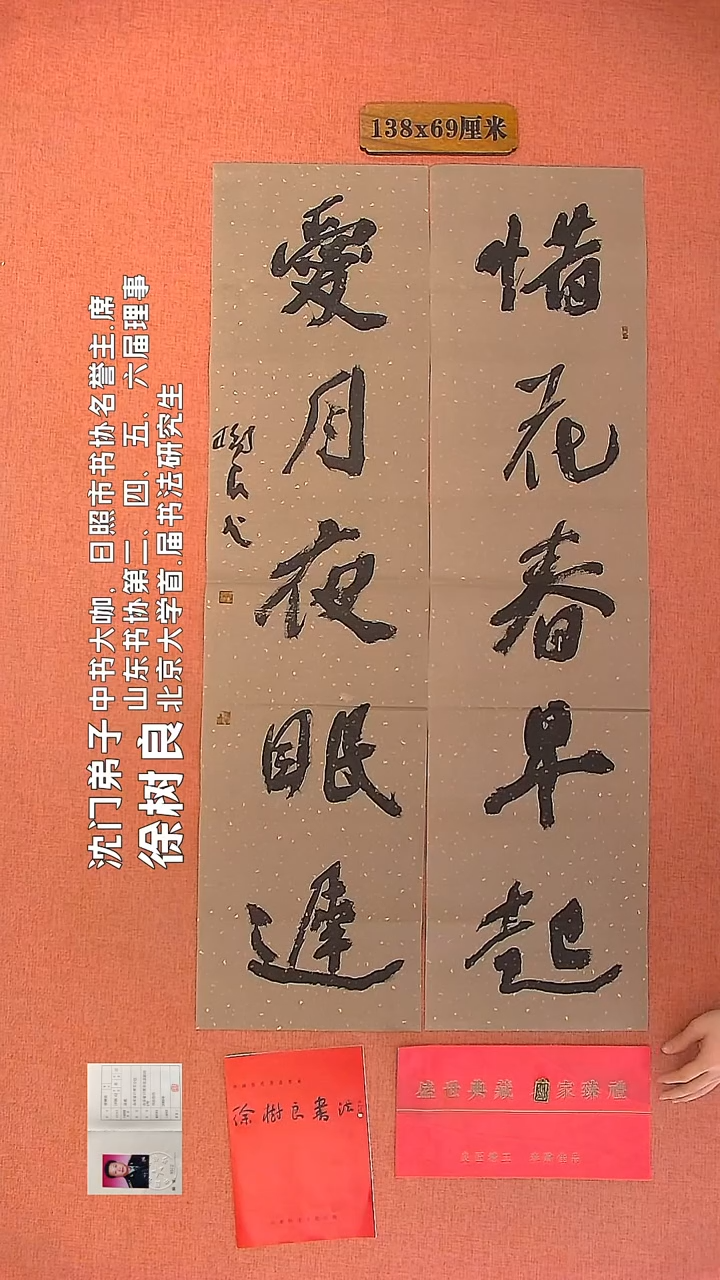 138x69厘米
惜花春早起
愛月夜眠遲
樹良書
沈门弟子 中书大咖，日照市书协名誉主.席
山东书协第三、四、五、六届理事
徐树良 北京大学首.届书法研究生
徐樹良書法
盛世典藏 家臻禮